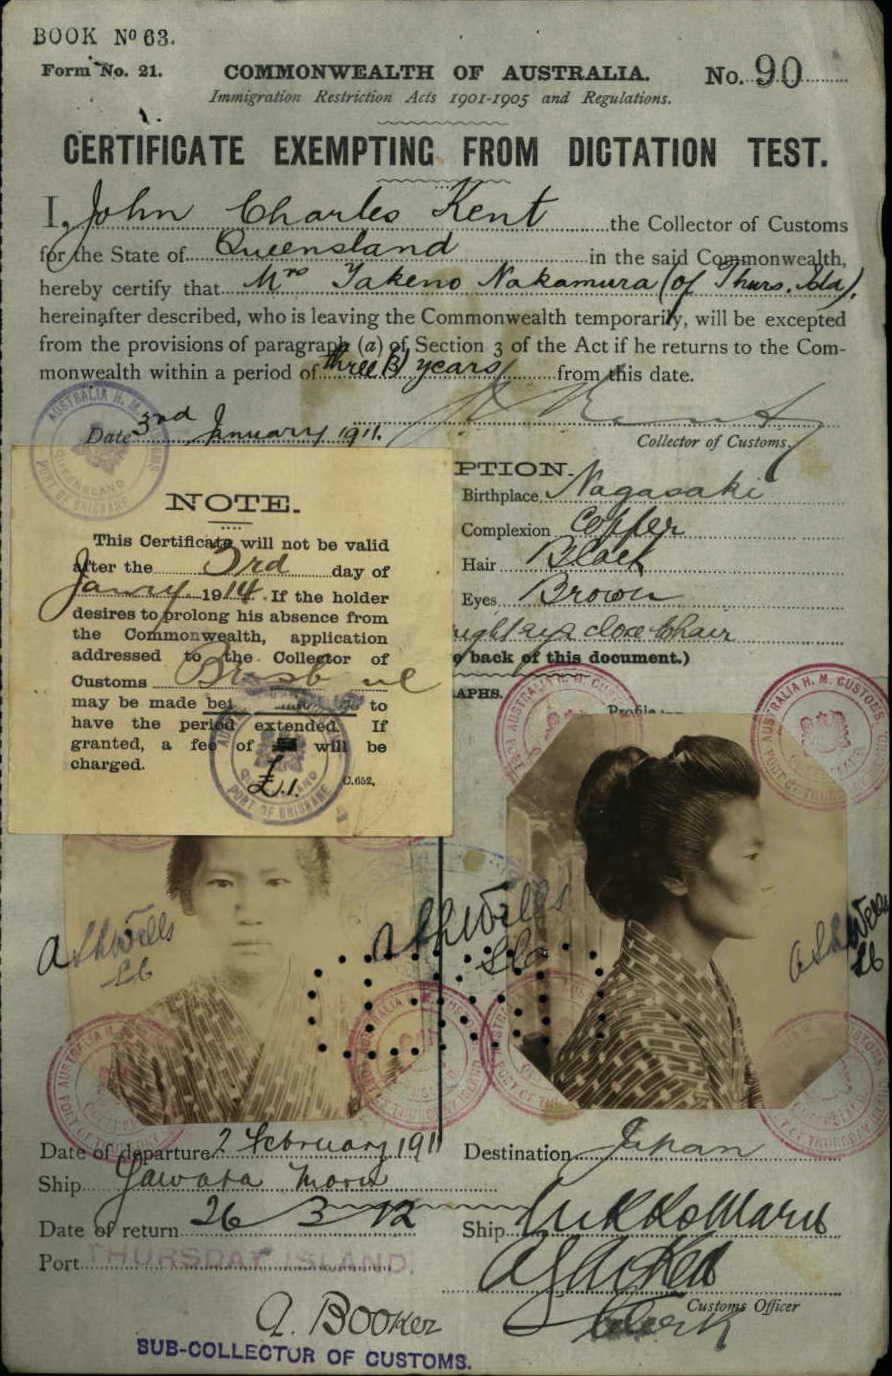 BOOK Nº 63.
Form No. 21. COMMONWEALTH OF AUSTRALIA. No. 90
Immigration Restriction Acts 1901-1905 and Regulations.
CERTIFICATE EXEMPTING FROM DICTATION TEST.
I, John Charles Kent the Collector of Customs
for the State of Queensland in the said Commonwealth,
hereby certify that Mrs Takeno Nakamura (of Thurs. Isld),
hereinafter described, who is leaving the Commonwealth temporarily, will be excepted
from the provisions of paragraph (a) of Section 3 of the Act if he returns to the Com-
monwealth within a period of three (3) years from this date.
Date 3rd January 1911.
Collector of Customs.
AUSTRALIA H. M. CUSTOMS
QUEENSLAND
PORT OF BRISBANE
NOTE.
This Certificate will not be valid
after the 3rd day of
Jany 1914. If the holder
desires to prolong his absence from
the Commonwealth, application
addressed to the Collector of
Customs
may be made to
have the period extended. If
granted, a fee of will be
charged.
£1.
C.652.
PORT OF BRISBANE
PTION.
Birthplace Nagasaki
Complexion Copper
Hair Black
Eyes Brown
right eye close to hair
back of this document.)
APHS.
Profile
AUSTRALIA H. M. CUSTOMS
Date of departure 2 February 1911 Destination Japan
Ship Yawata Maru
Date of return 26 3 12 Ship Nikko Maru
Port THURSDAY ISLAND.
Customs Officer
Clerk
A. Booker
SUB-COLLECTOR OF CUSTOMS.